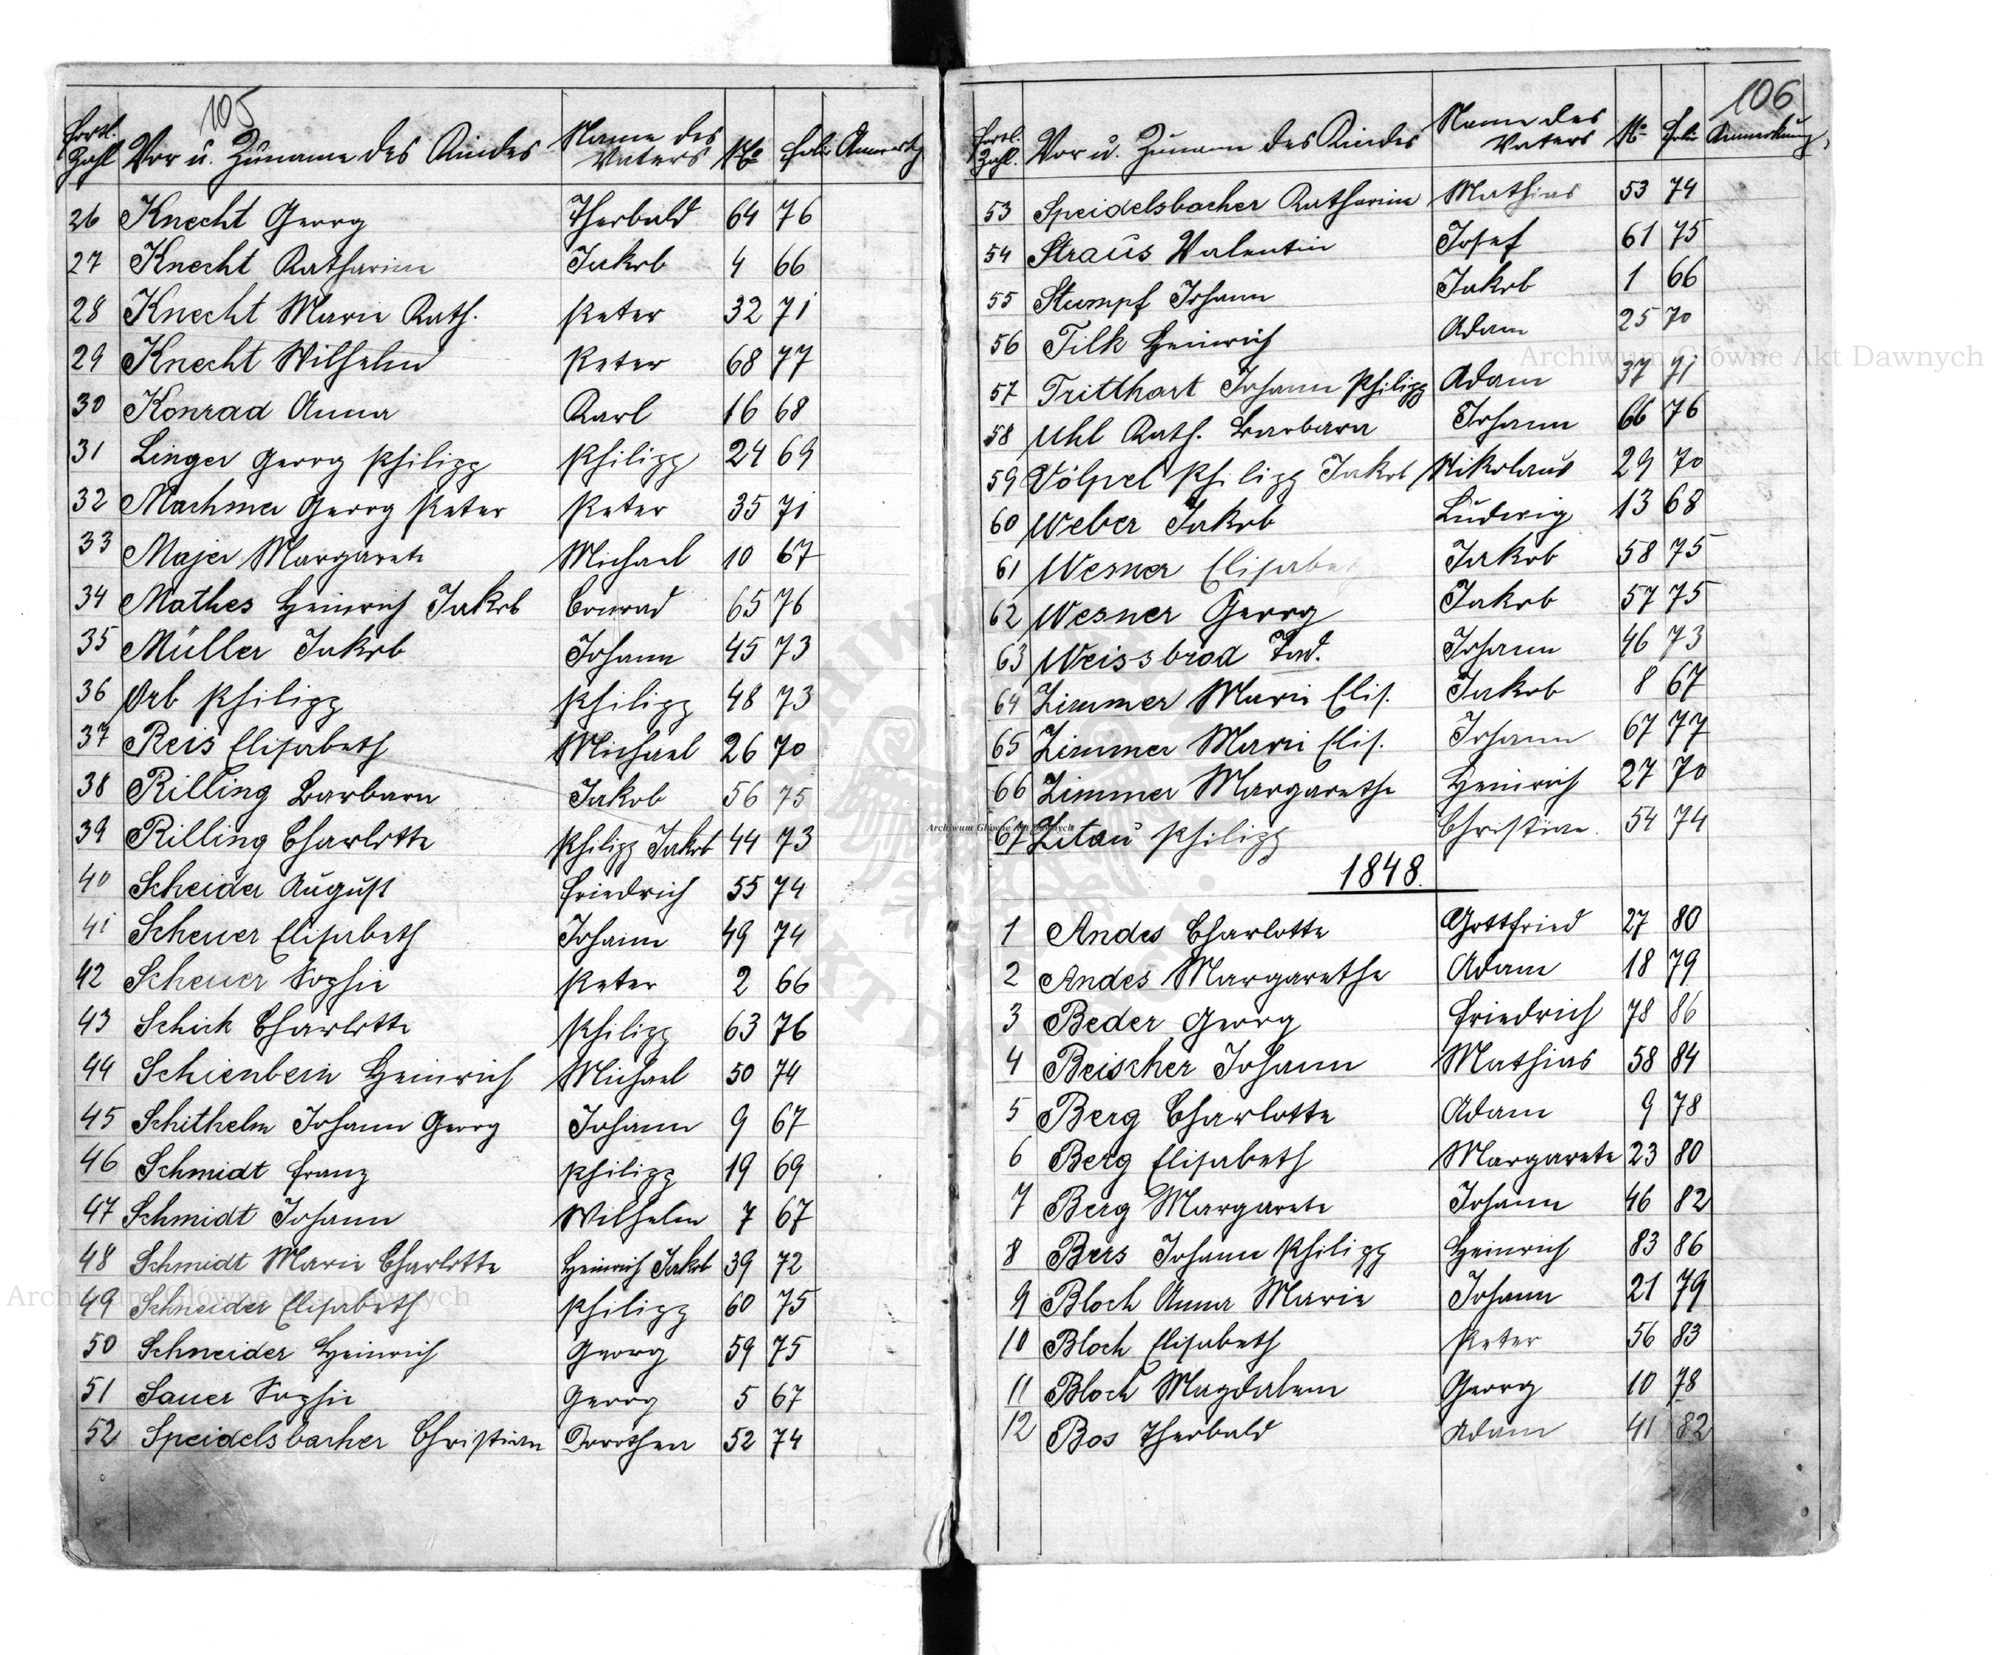 105
Fortl. Zahl Vor u. Zuname des Kindes Name des Vaters No Folio Anmerkg
26 Knecht Georg Theobald 64 76
27 Knecht Katharine Jakob 4 66
28 Knecht Marie Kath. Peter 32 71
29 Knecht Wilhelm Peter 68 77
30 Konrad Anna Karl 16 68
31 Linger Georg Philipp Philipp 24 69
32 Machmer Georg Peter Peter 35 71
33 Majer Margarete Michael 10 67
34 Mathes Heinrich Jakob Conrad 65 76
35 Müller Jakob Johann 45 73
36 Orb Philipp Philipp 48 73
37 Reis Elisabeth Michael 26 70
38 Rilling Barbara Jakob 56 75
39 Rilling Charlotte Philipp Jakob 44 73
40 Scheider August Friedrich 55 74
41 Scheuer Elisabeth Johann 49 74
42 Scheuer Sophie Peter 2 66
43 Schick Charlotte Philipp 63 76
44 Schienbein Heinrich Michael 50 74
45 Schithelm Johann Georg Johann 9 67
46 Schmidt Franz Philipp 19 69
47 Schmidt Johann Wilhelm 7 67
48 Schmidt Marie Charlotte Heinrich Jakob 39 72
49 Schneider Elisabeth Philipp 60 75
50 Schneider Heinrich Georg 59 75
51 Sauer Sophie Georg 5 67
52 Speidelsbacher Christian Dorothea 52 74
106
Fortl. Zahl. Vor u. Zuname des Kindes Name des Vaters No Folio Anmerkung
53 Speidelsbacher Katharine Mathias 53 74
54 Straus Valentin Josef 61 75
55 Stumpf Johann Jakob 1 66
56 Tilk Heinrich Adam 25 70
57 Tritthart Johann Philipp Adam 37 71
58 Uhl Kath. Barbara Johann 66 76
59 Völpel Philipp Jakob Nikolaus 29 70
60 Weber Jakob Ludwig 13 68
61 Wesner Elisabet Jakob 58 75
62 Wesner Georg Jakob 57 75
63 Weissbrod Johann 46 73
64 Zimmer Marie Elis. Jakob 8 67
65 Zimmer Marie Elis. Johann 67 77
66 Zimmer Margarethe Heinrich 27 70
67 Zitau Philipp Christian 54 74
1848.
1 Andes Charlotte Gottfried 27 80
2 Andes Margarethe Adam 18 79
3 Beder Georg Friedrich 78 86
4 Beischer Johann Mathias 58 84
5 Berg Charlotte Adam 9 78
6 Berg Elisabeth Margarete 23 80
7 Berg Margarete Johann 46 82
8 Bers Johann Philipp Heinrich 83 86
9 Bloch Anna Marie Johann 21 79
10 Bloch Elisabeth Peter 56 83
11 Bloch Magdalena Georg 10 78
12 Bos Theobald Adam 41 82
Archiwum Główne Akt Dawnych
Archiwum Główne Akt Dawnych
Archiwum Główne Akt Dawnych